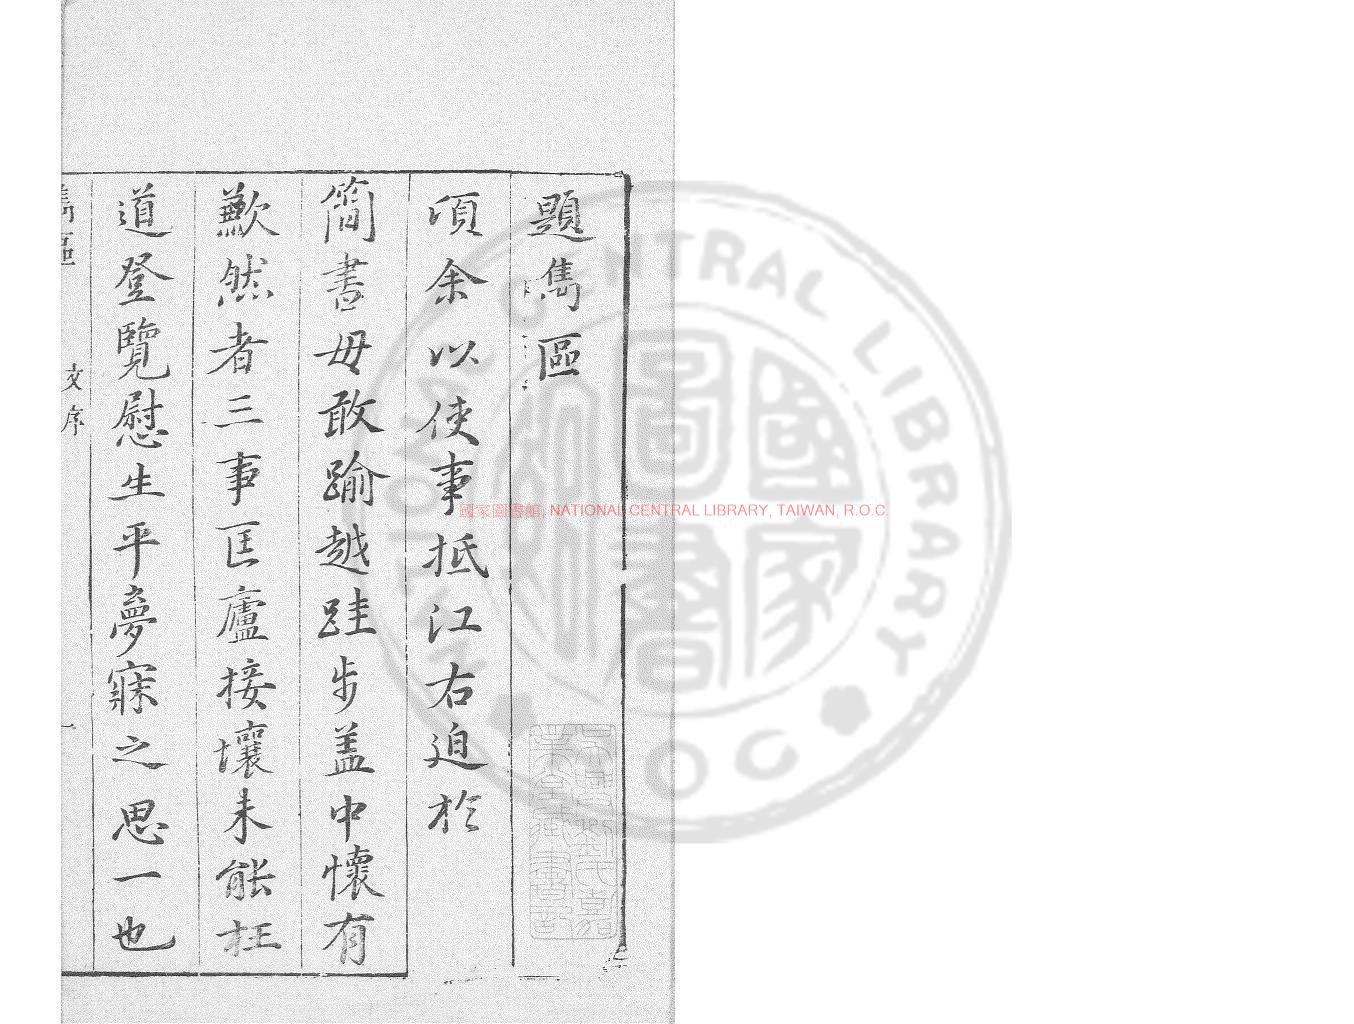 題雋區
頃余以使事抵江右迫於
簡書毋敢踰越跬步盖中懷有
歉然者三事匡廬接壤未能枉
道登覽慰生平夢寐之思一也
雋區
文序
一
吳興劉氏嘉
業堂藏書記
國家圖書館, NATIONAL CENTRAL LIBRARY, TAIWAN, R.O.C.
國家圖書館
NATIONAL CENTRAL LIBRARY
ROC